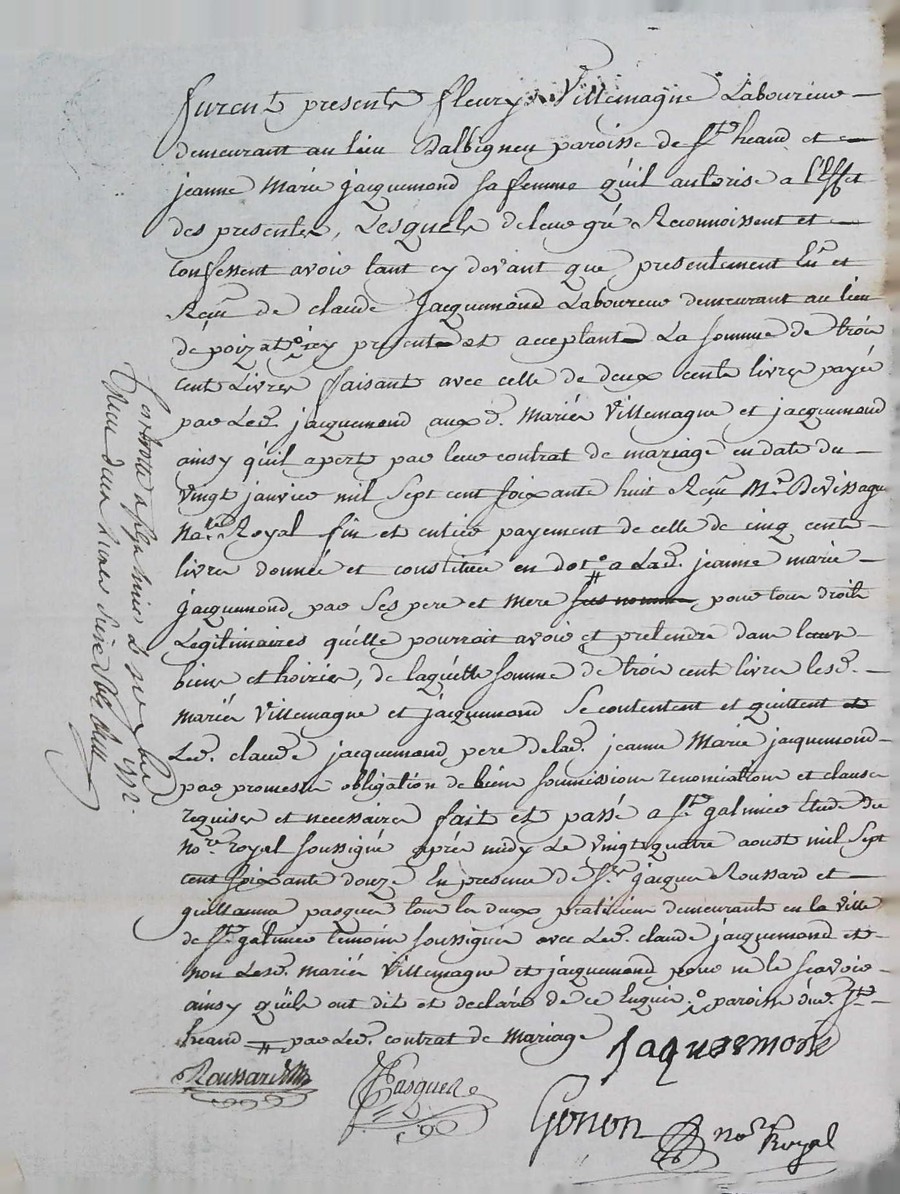 furent presents fleury Villemagne Laboureur
demeurant au lieu Dalbigneu paroisse de St. heand et
jeanne Marie jacquemond sa femme qu'il autorise a l'Effet
des presentes, Lesquels de leur gré Reconnoissent et
Confessent avoir tant cy devant que presentement Eu et
Reçu de claude Jacquemond Laboureur demeurant au lieu
de poizat o icy present et acceptant La somme de trois
cent Livres faisant avec celle de deux cents livres payée
par Led. jacquemond auxd. Mariés Villemagne et jacquemond
ainsy qu'il apert par leur contrat de mariage en date du
vingt janvier mil sept cent soixante huit Reçu Me. Devissague
nore. Royal fin et entier payement de celle de cinq cents
livres donnée et constituée en dot # a Lad. jeanne marie
jacquemond, par ses pere et mere pour tous droits
Legitimaires qu'elle pourrait avoir et pretendre dans leurs
biens et hoiries, de laquelle somme de trois cent livres lesd.
mariés Villemagne et jacquemond se contentent et quittent
Led. claude jacquemond pere de lad. jeanne Marie jacquemond
par promesses obligation de biens soumissions renonciations et clauses
requises et necessaires fait et passé a St. galmier Etude du
nore. royal soussigné après midy Le vingtquatre aoust mil sept
cent soixante douze En presence de Sr. jacques Roussard et
guillaume pasquer tous les deux praticiens demeurants en la ville
de St. galmier temoins soussignés avec Led. claude jacquemond et
non Lesd. mariés Villemagne et jacquemond pour ne le scavoir
ainsy qu'ils ont dit et declaré de ce Enquis. o paroisse dud. St.
heand # par Led. contrat de Mariage
Jaquemond
Roussard
Pasquer
Gonon nore Royal
Controllé a St galmier Le 1772
Reçu deux livres seize sols